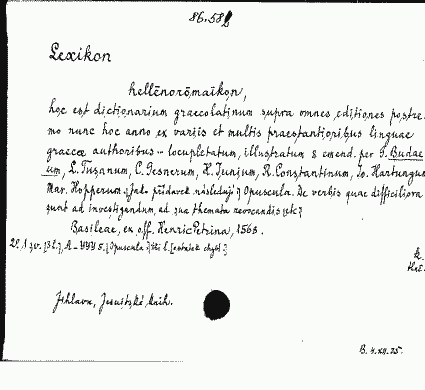 86.582
Lexikon
hellēnorōmaïkon,
hoc est dictionarium graecolatinum supra omnes editiones postre-
mo nunc hoc anno ex variis et multis praestantioribus linguae
graecae authoribus - locupletatum, illustratum & emend. per G. Budae
um, L. Tusanum, C. Gesnerum, H. Junium, R. Constantinum, Jo. Hartungum
Mar. Hopperum [Jako přídavek následují:] Opuscula. De verbis quae difficiliora
sunt ad investigandum, ad sua themata revocandis [etc]
Basileae, ex off. HenricPetrina, 1568.
A - YYY 5. [Opuscula]
Jihlava, Jesuitská knih.
B. 4.XII.25.